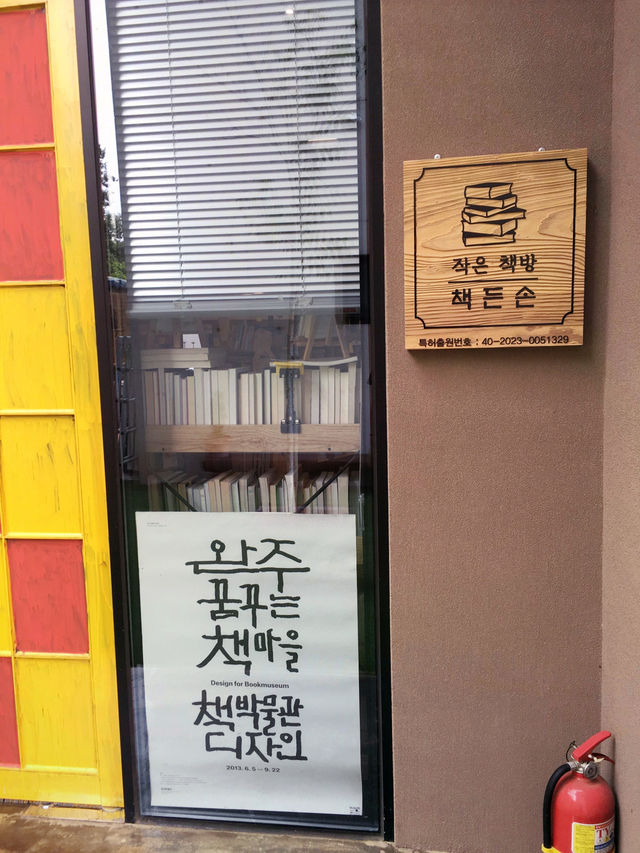 작은 책방
책 든 손
특허출원번호 : 40-2023-0051329
완주
꿈꾸는
책마을
Design for Bookmuseum
책박물관
디자인
2013. 6. 5 — 9. 22